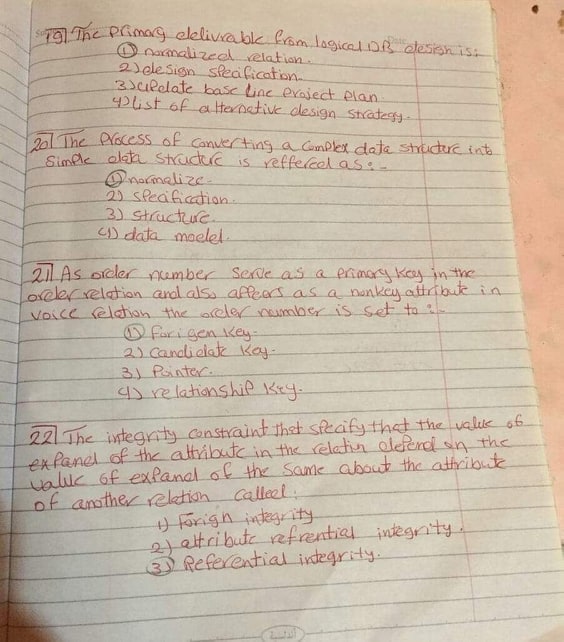 19] The Primary delivrable from logical DB design is:
① normalized relation.
2) design specification
3) update base line project plan
4) list of alternative design strategy.
20] The Process of Converting a Complex data structere into
Simple data structere is reffered as:-
① normalize.
2) specification.
3) structure.
4) data model.
21] As order number serve as a primary key in the
order relation and also appears as a nonkey attribute in
voice relation the order number is set to :-
① Forigen Key.
2) Candidate Key.
3) Pointer.
4) relationship Key.
22] The integrity constraint that specify that the value of
expand of the attribute in the relatin depend on the
value of expand of the same about the attribute
of another relation called:
1) Forign integrity
2) attribute refrential integrity.
③ Referential integrity.